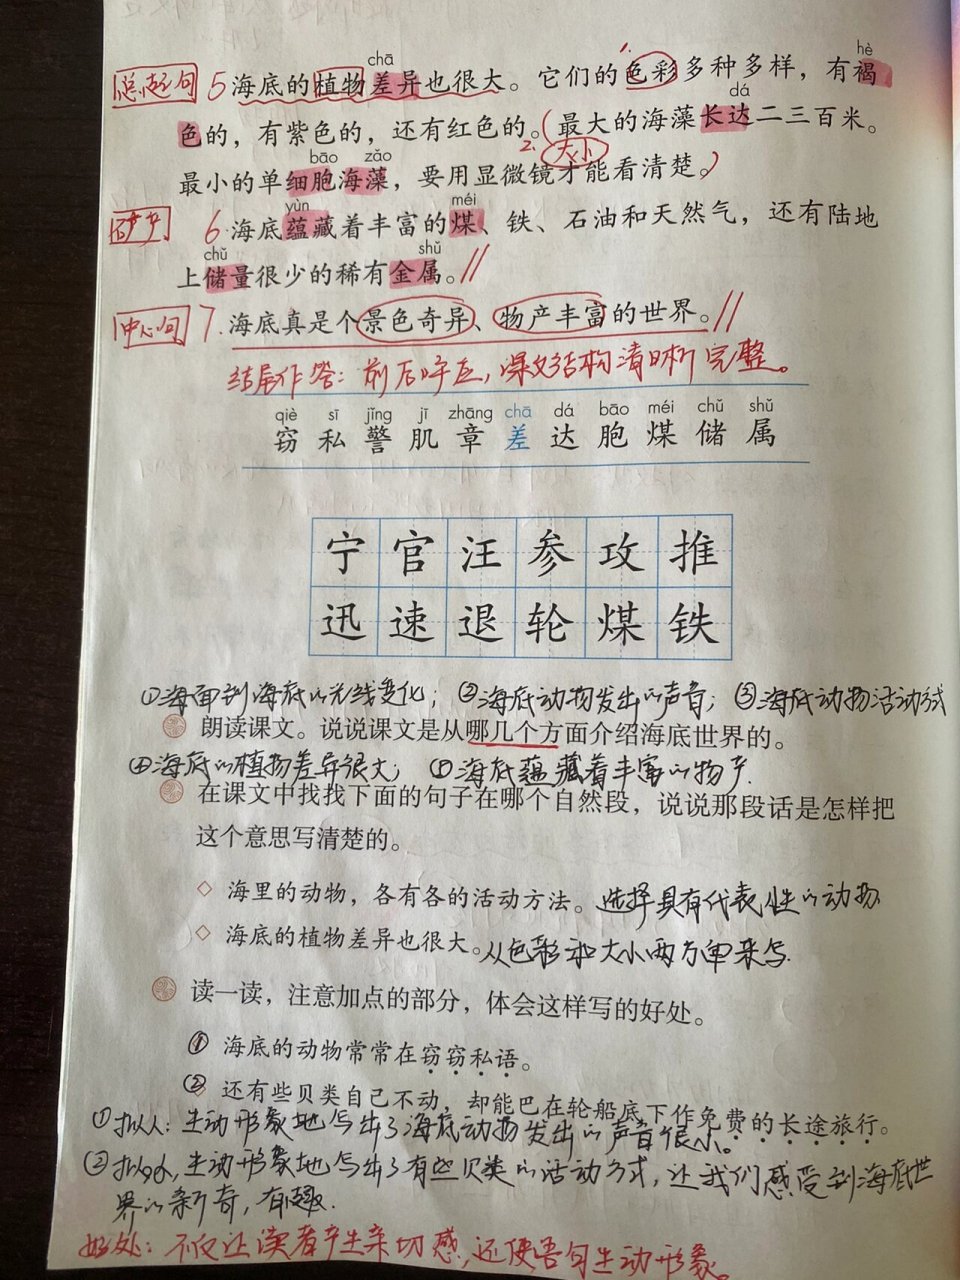 chā hè
总起句 5 海底的植物差异也很大。它们的色彩多种多样，有褐
1.
dá
色的，有紫色的，还有红色的。（最大的海藻长达二三百米。
2. 大小
bāo zǎo
最小的单细胞海藻，要用显微镜才能看清楚。）
yùn méi
矿产 6. 海底蕴藏着丰富的煤、铁、石油和天然气，还有陆地
chǔ shǔ
上储量很少的稀有金属。//
中心句 7. 海底真是个景色奇异、物产丰富的世界。//
结尾作答：前后呼应，课文结构清晰完整。
qiè sī jǐng jī zhāng chā dá bāo méi chǔ shǔ
窃 私 警 肌 章 差 达 胞 煤 储 属
宁 官 汪 参 攻 推
迅 速 退 轮 煤 铁
①海面到海底的光线变化；②海底动物发出的声音；③海底动物活动方式
朗读课文。说说课文是从哪几个方面介绍海底世界的。
④海底的植物差异很大；⑤海底蕴藏着丰富的物产.
在课文中找找下面的句子在哪个自然段，说说那段话是怎样把
这个意思写清楚的。
海里的动物，各有各的活动方法。选择具有代表性的动物
海底的植物差异也很大。从色彩和大小两方面来写.
读一读，注意加点的部分，体会这样写的好处。
① 海底的动物常常在窃窃私语。
② 还有些贝类自己不动，却能巴在轮船底下作免费的长途旅行。
①拟人：生动形象地写出了海底动物发出的声音很小。
②拟人，生动形象地写出了有些贝类的活动方式，让我们感受到海底世
界的新奇，有趣.
好处：不仅让读者产生亲切感，还使语句生动形象。